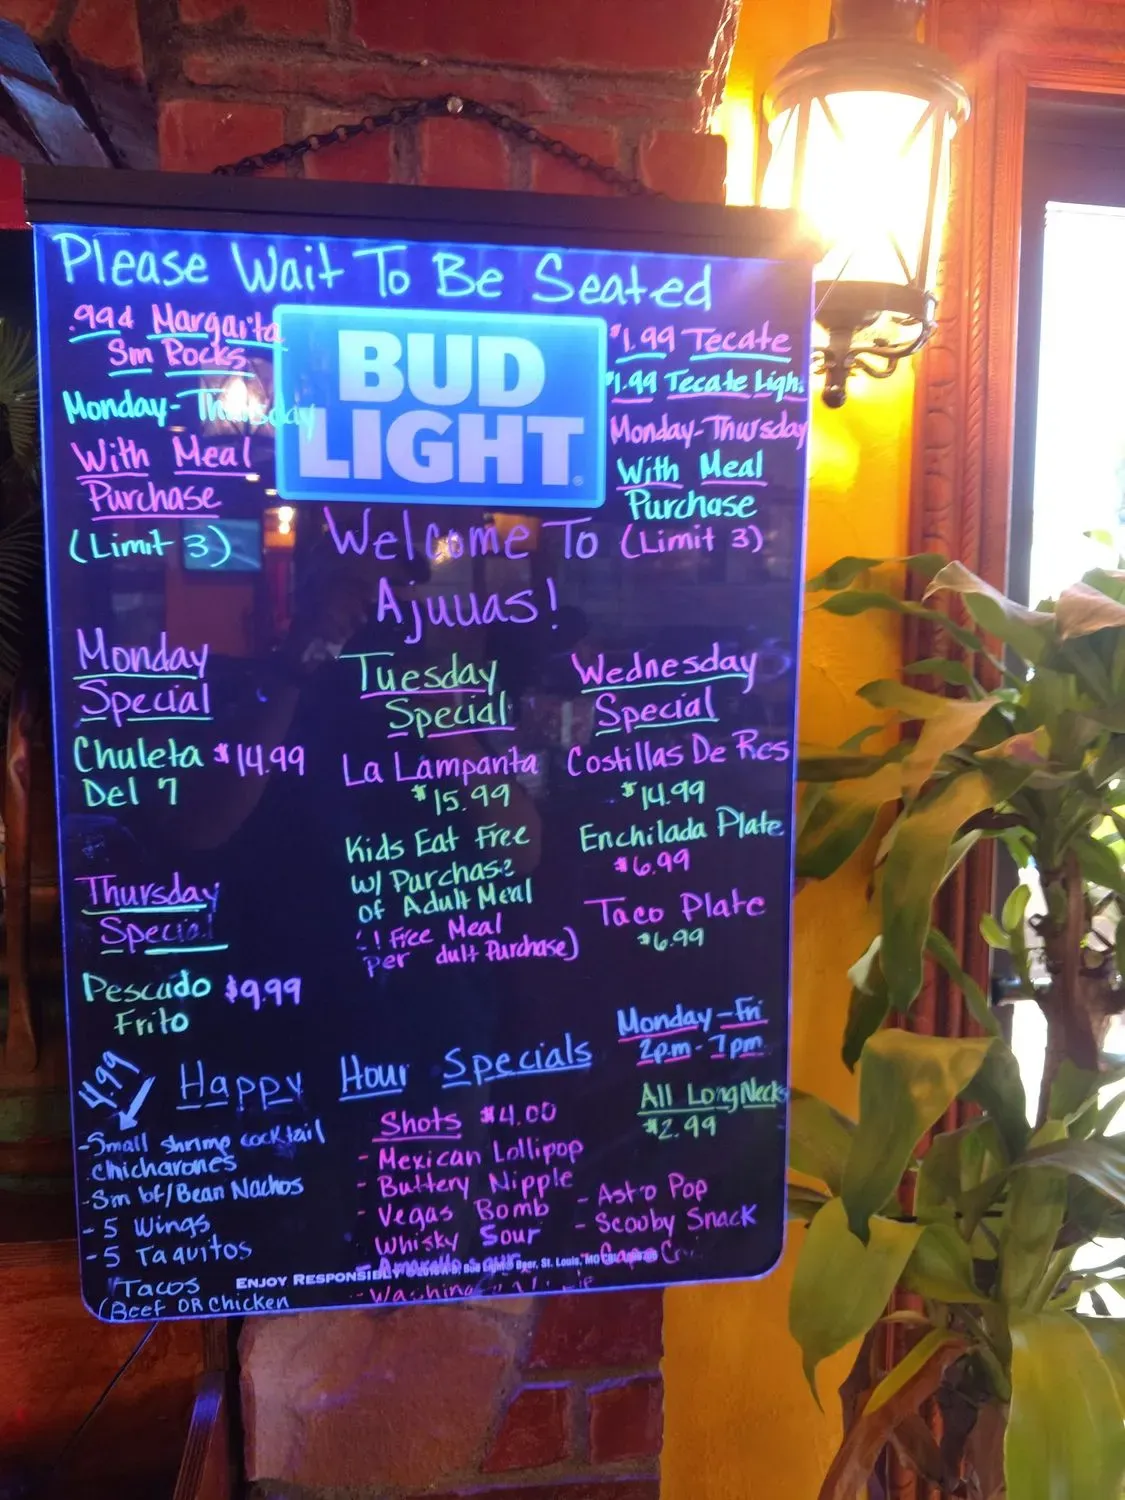 Please Wait To Be Seated
.99¢ Margarita
Sm Rocks
Monday-Thursday
With Meal
Purchase
(Limit 3)
BUD
LIGHT
$1.99 Tecate
$1.99 Tecate Light
Monday-Thursday
With Meal
Purchase
(Limit 3)
Welcome To
Ajuuas!
Monday
Special
Chuleta $14.99
Del 7
Tuesday
Special
La Lampanta
$15.99
Kids Eat Free
w/ Purchase
of Adult Meal
(1 Free Meal
per dult Purchase)
Wednesday
Special
Costillas De Res
$14.99
Enchilada Plate
$6.99
Taco Plate
$6.99
Thursday
Special
Pescado $9.99
Frito
Happy Hour Specials
Monday-Fri
2pm-7pm
All LongNecks
$2.99
4.99
-Small shrimp cocktail
.chicharones
-Sm bf/Bean Nachos
- 5 Wings
- 5 Taquitos
Tacos
(Beef OR Chicken
Shots $4.00
- Mexican Lollipop
- Buttery Nipple
- Vegas Bomb
Whisky Sour
- Amaretto Sour
- Astro Pop
- Scooby Snack
ENJOY RESPONSIBLY
Beer, St. Louis, MO